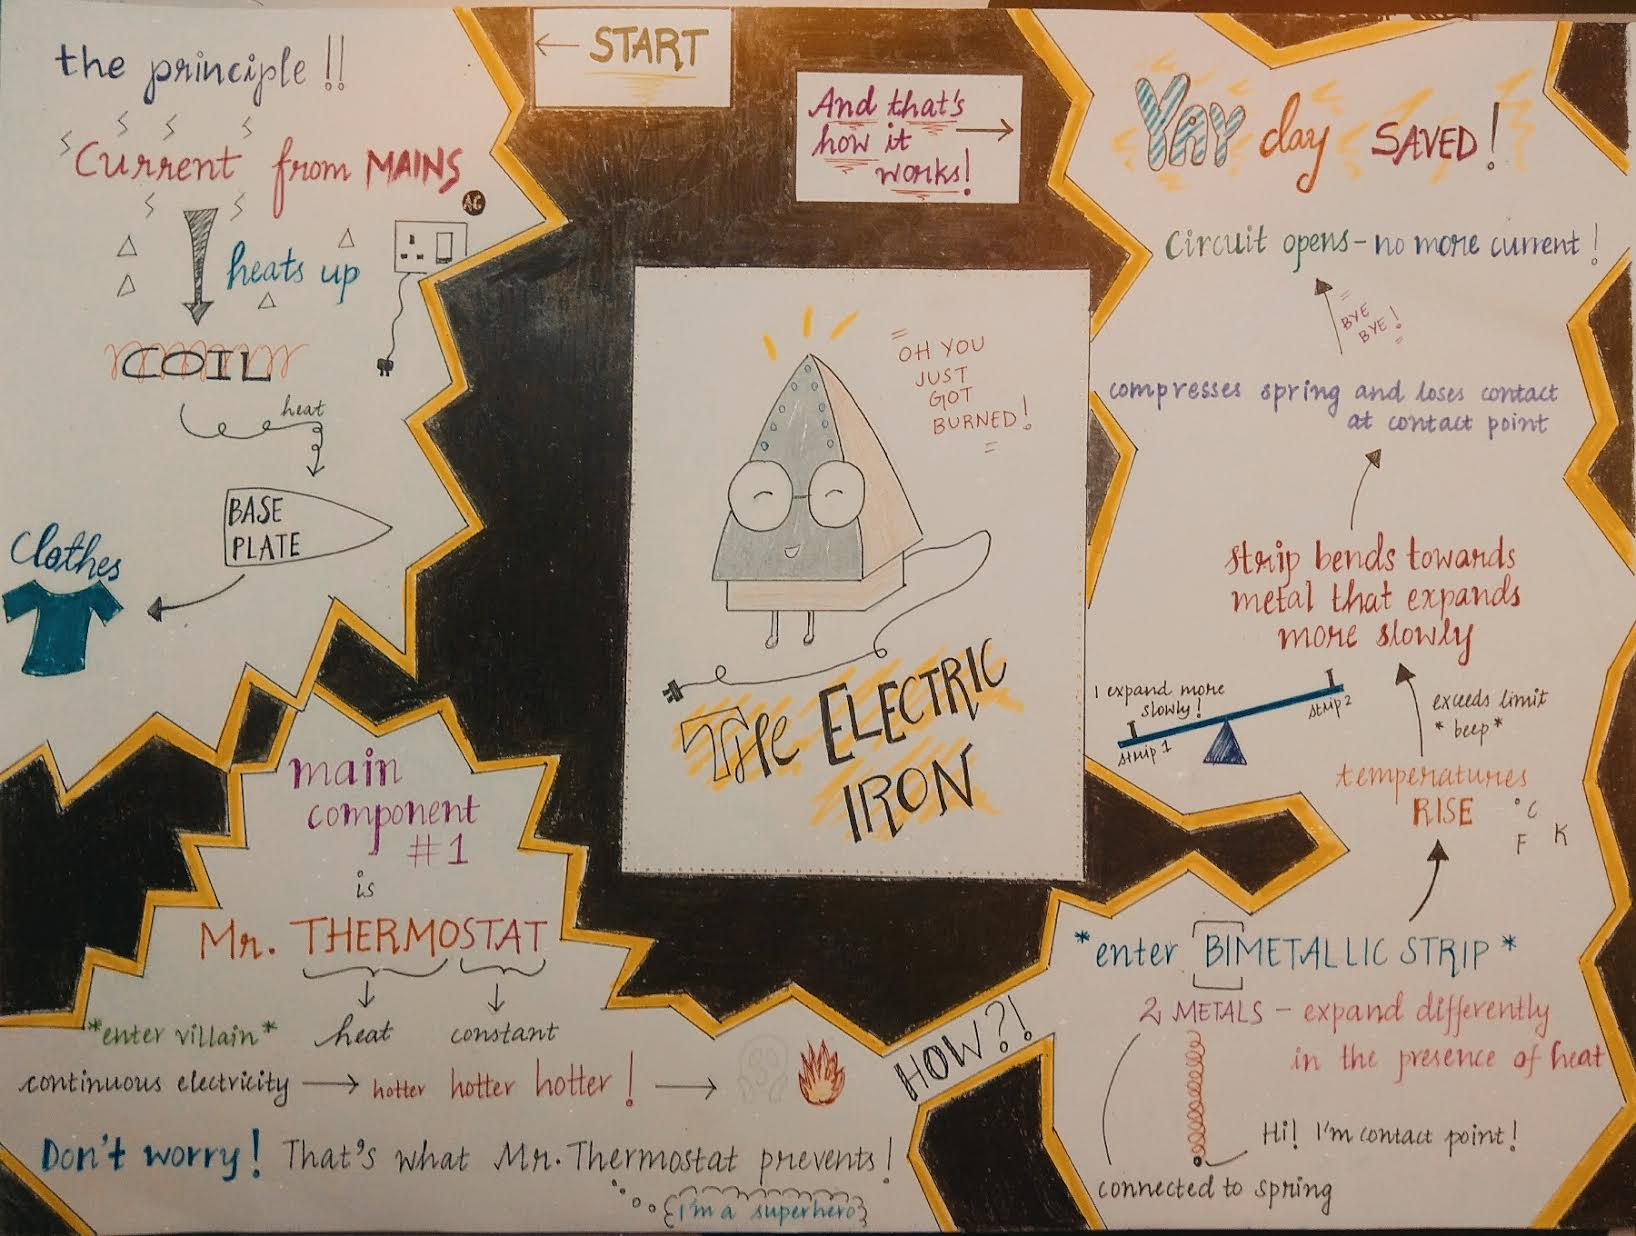 START
the principle !!
Current from MAINS
AC
heats up
COIL
heat
BASE
PLATE
Clothes
main
component
#1
is
Mr. THERMOSTAT
heat constant
*enter villain*
continuous electricity → hotter hotter hotter ! →
Don't worry! That's what Mr. Thermostat prevents!
I'm a superhero
HOW?!
*enter BIMETALLIC STRIP*
2 METALS – expand differently
in the presence of heat
Hi! I'm contact point!
connected to spring
temperatures
RISE
°C
F K
exceeds limit
*beep*
I expand more
slowly!
strip 1
strip 2
strip bends towards
metal that expands
more slowly
compresses spring and loses contact
at contact point
BYE
BYE!
Circuit opens – no more current!
YAY day SAVED!
And that's
how it
works!
"OH YOU
JUST
GOT
BURNED!"
THE ELECTRIC
IRON